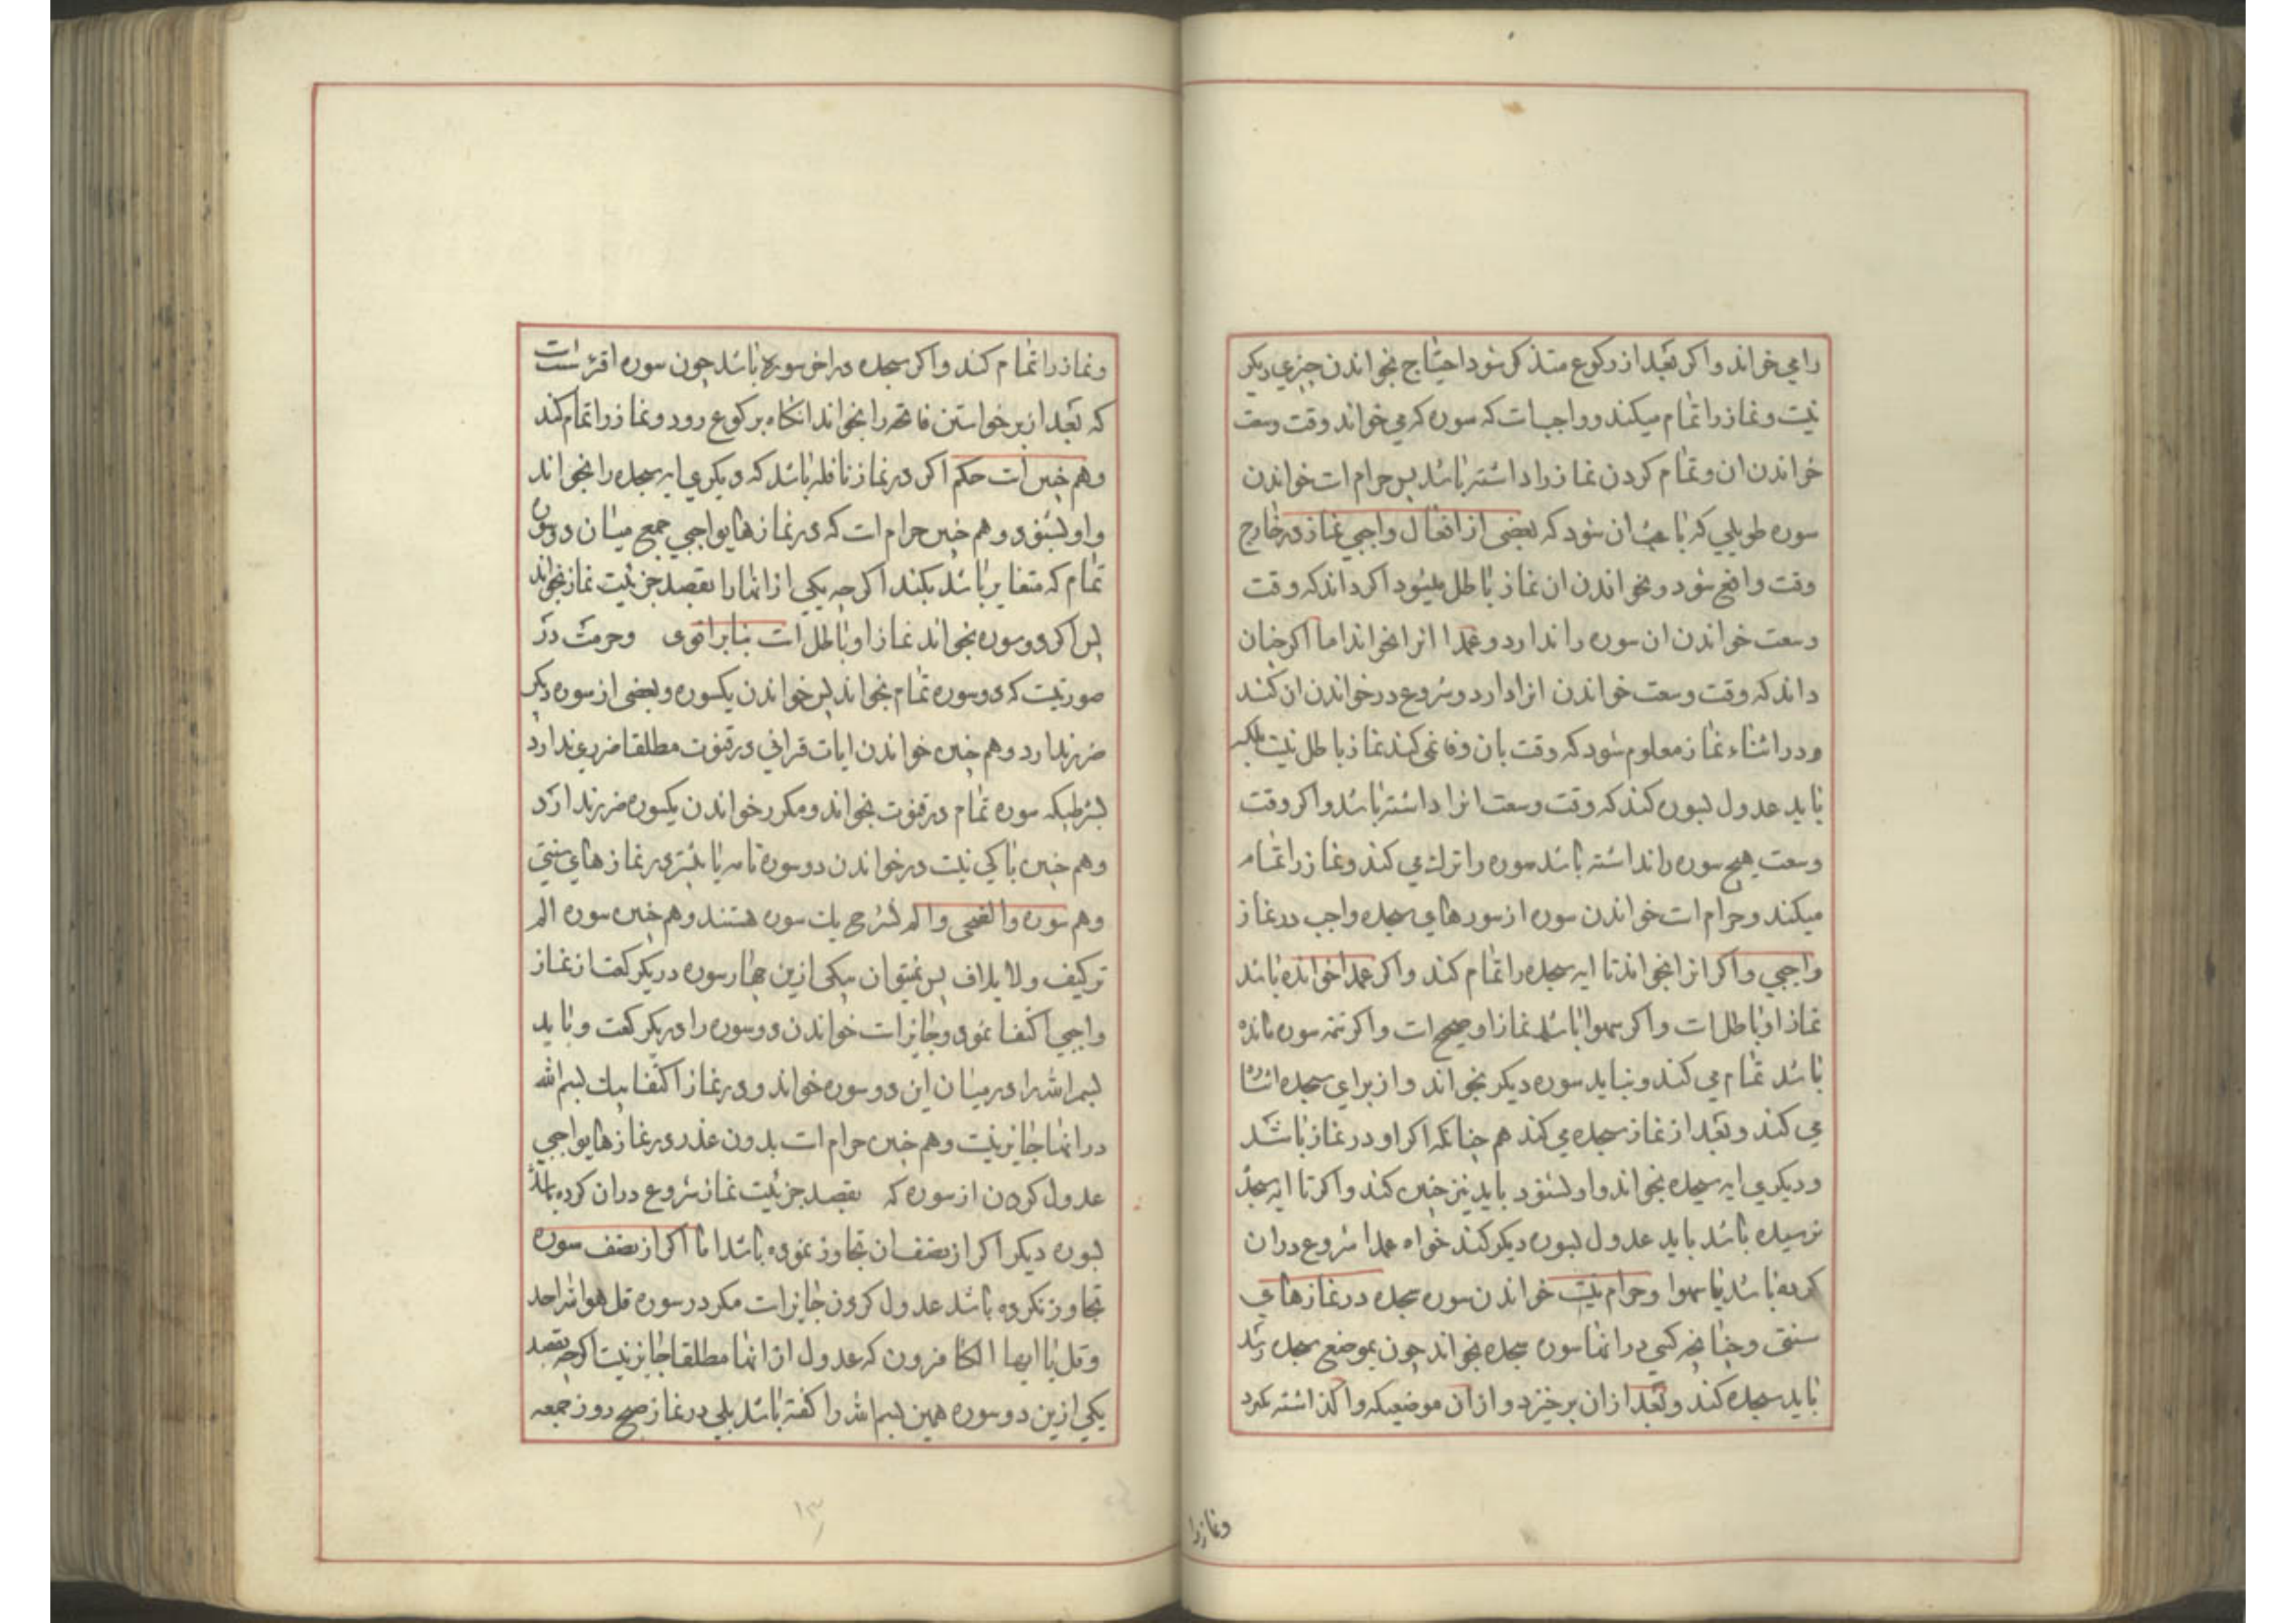 را می خواند و اکر بعد از رکوع متذکر شود احتیاج بخواندن چیزی دیکر
نیست و نماز را تمام میکند و واجب است که سوره که می خواند وقت وسعت
خواندن ان و تمام کردن نماز را داشته باشد پس حرام است خواندن
سوره طویلی که باعث ان شود که بعضی از افعال واجبی نماز در خارج
وقت واقع شود و بخواندن ان نماز باطل میشود اکر داند که وقت
وسعت خواندن ان سوره را ندارد و عمدا انرا بخواند اما اکر چنان
داند که وقت وسعت خواندن انرا دارد و شروع در خواندن ان کند
و در اثناء نماز معلوم شود که وقت بان وفا نمی کند نماز باطل نیست بلکه
باید عدول بسوره کند که وقت وسعت انرا داشته باشد و اکر وقت
وسعت هیچ سوره را نداشته باشد سوره را ترک می کند و نماز را تمام
میکند و حرام است خواندن سوره از سورهای سجده واجب در نماز
واجبی و اکر انرا بخواند تا ایه سجده را تمام کند و اکر عمدا خوانده باشد
نماز او باطل است و اکر سهوا باشد نماز او صحیح است و اکر تتمه سوره مانده
باشد تمام می کند و نباید سوره دیکر بخواند و از برای سجده اشاره
می کند و بعد از نماز سجده می کند هم چنانکه اکر او در نماز باشد
و دیکری ایه سجده بخواند و او بشنود باید نیز چنین کند و اکر تا ایه سجده
نرسیده باشد باید عدول بسوره دیکر کند خواه عمدا شروع در ان
کرده باشد یا سهوا و حرام نیست خواندن سوره سجده در نماز های
سنتی و چنانچه کسی در انها سوره سجده بخواند چون بموضع سجده رسد
باید سجده کند و بعد از ان برخیزد و از ان موضعیکه وا کذاشته بکیرد
و نماز را
و نماز را تمام کند و اکر سجده در اخر سوره باشد چون سوره اقرء است
که بعد از برخواستن فاتحه را بخواند انکاه برکوع رود و نماز را تمام کند
و هم چنین است حکم اکر در نماز نافله باشد که دیکری ایه سجده را بخواند
و او بشنود و هم چنین حرام است که در نماز های واجبی جمع میان دو سوره
تمام که متغایر باشد بکند اکر چه یکی از انها را بقصد جزئیت نماز نخواند
پس اکر دو سوره بخواند نماز او باطل است بنا بر اقوی و حرمت در
صورتیست که دو سوره تمام بخواند پس خواندن یکسوره و بعضی از سوره دیکر
ضرر ندارد و هم چنین خواندن ایات قرانی در قنوت مطلقا ضرری ندارد
بشرطیکه سوره تمام در قنوت نخواند و مکرر خواندن یکسوره ضرر ندارد
و هم چنین باکی نیست در خواندن دو سوره تمام یا بیشتر در نماز های سنتی
و هم سوره والضحی و الم نشرح یک سوره هستند و هم چنین سوره الم
ترکیف و لایلاف پس نمیتوان بیکی ازین چهار سوره در یکرکعت از نماز
واجبی اکتفا نمود و جایز است خواندن دو سوره را در یکرکعت و باید
بسم الله را در میان این دو سوره خواند و در نماز اکتفا بیک بسم الله
در انها جایز نیست و هم چنین حرام است بدون عذر در نماز های واجبی
عدول کردن از سوره که بقصد جزئیت نماز شروع در ان کرده باشد
بسوره دیکر اکر از نصف ان تجاوز نموده باشد اما اکر از نصف سوره
تجاوز نکرده باشد عدول کردن جایز است مکر در سوره قل هو الله احد
و قل یا ایها الکافرون که عدول از انها مطلقا جایز نیست اکر چه بقصد
یکی ازین دو سوره همین بسم الله را کفته باشد بلی در نماز صبح روز جمعه
۱۳